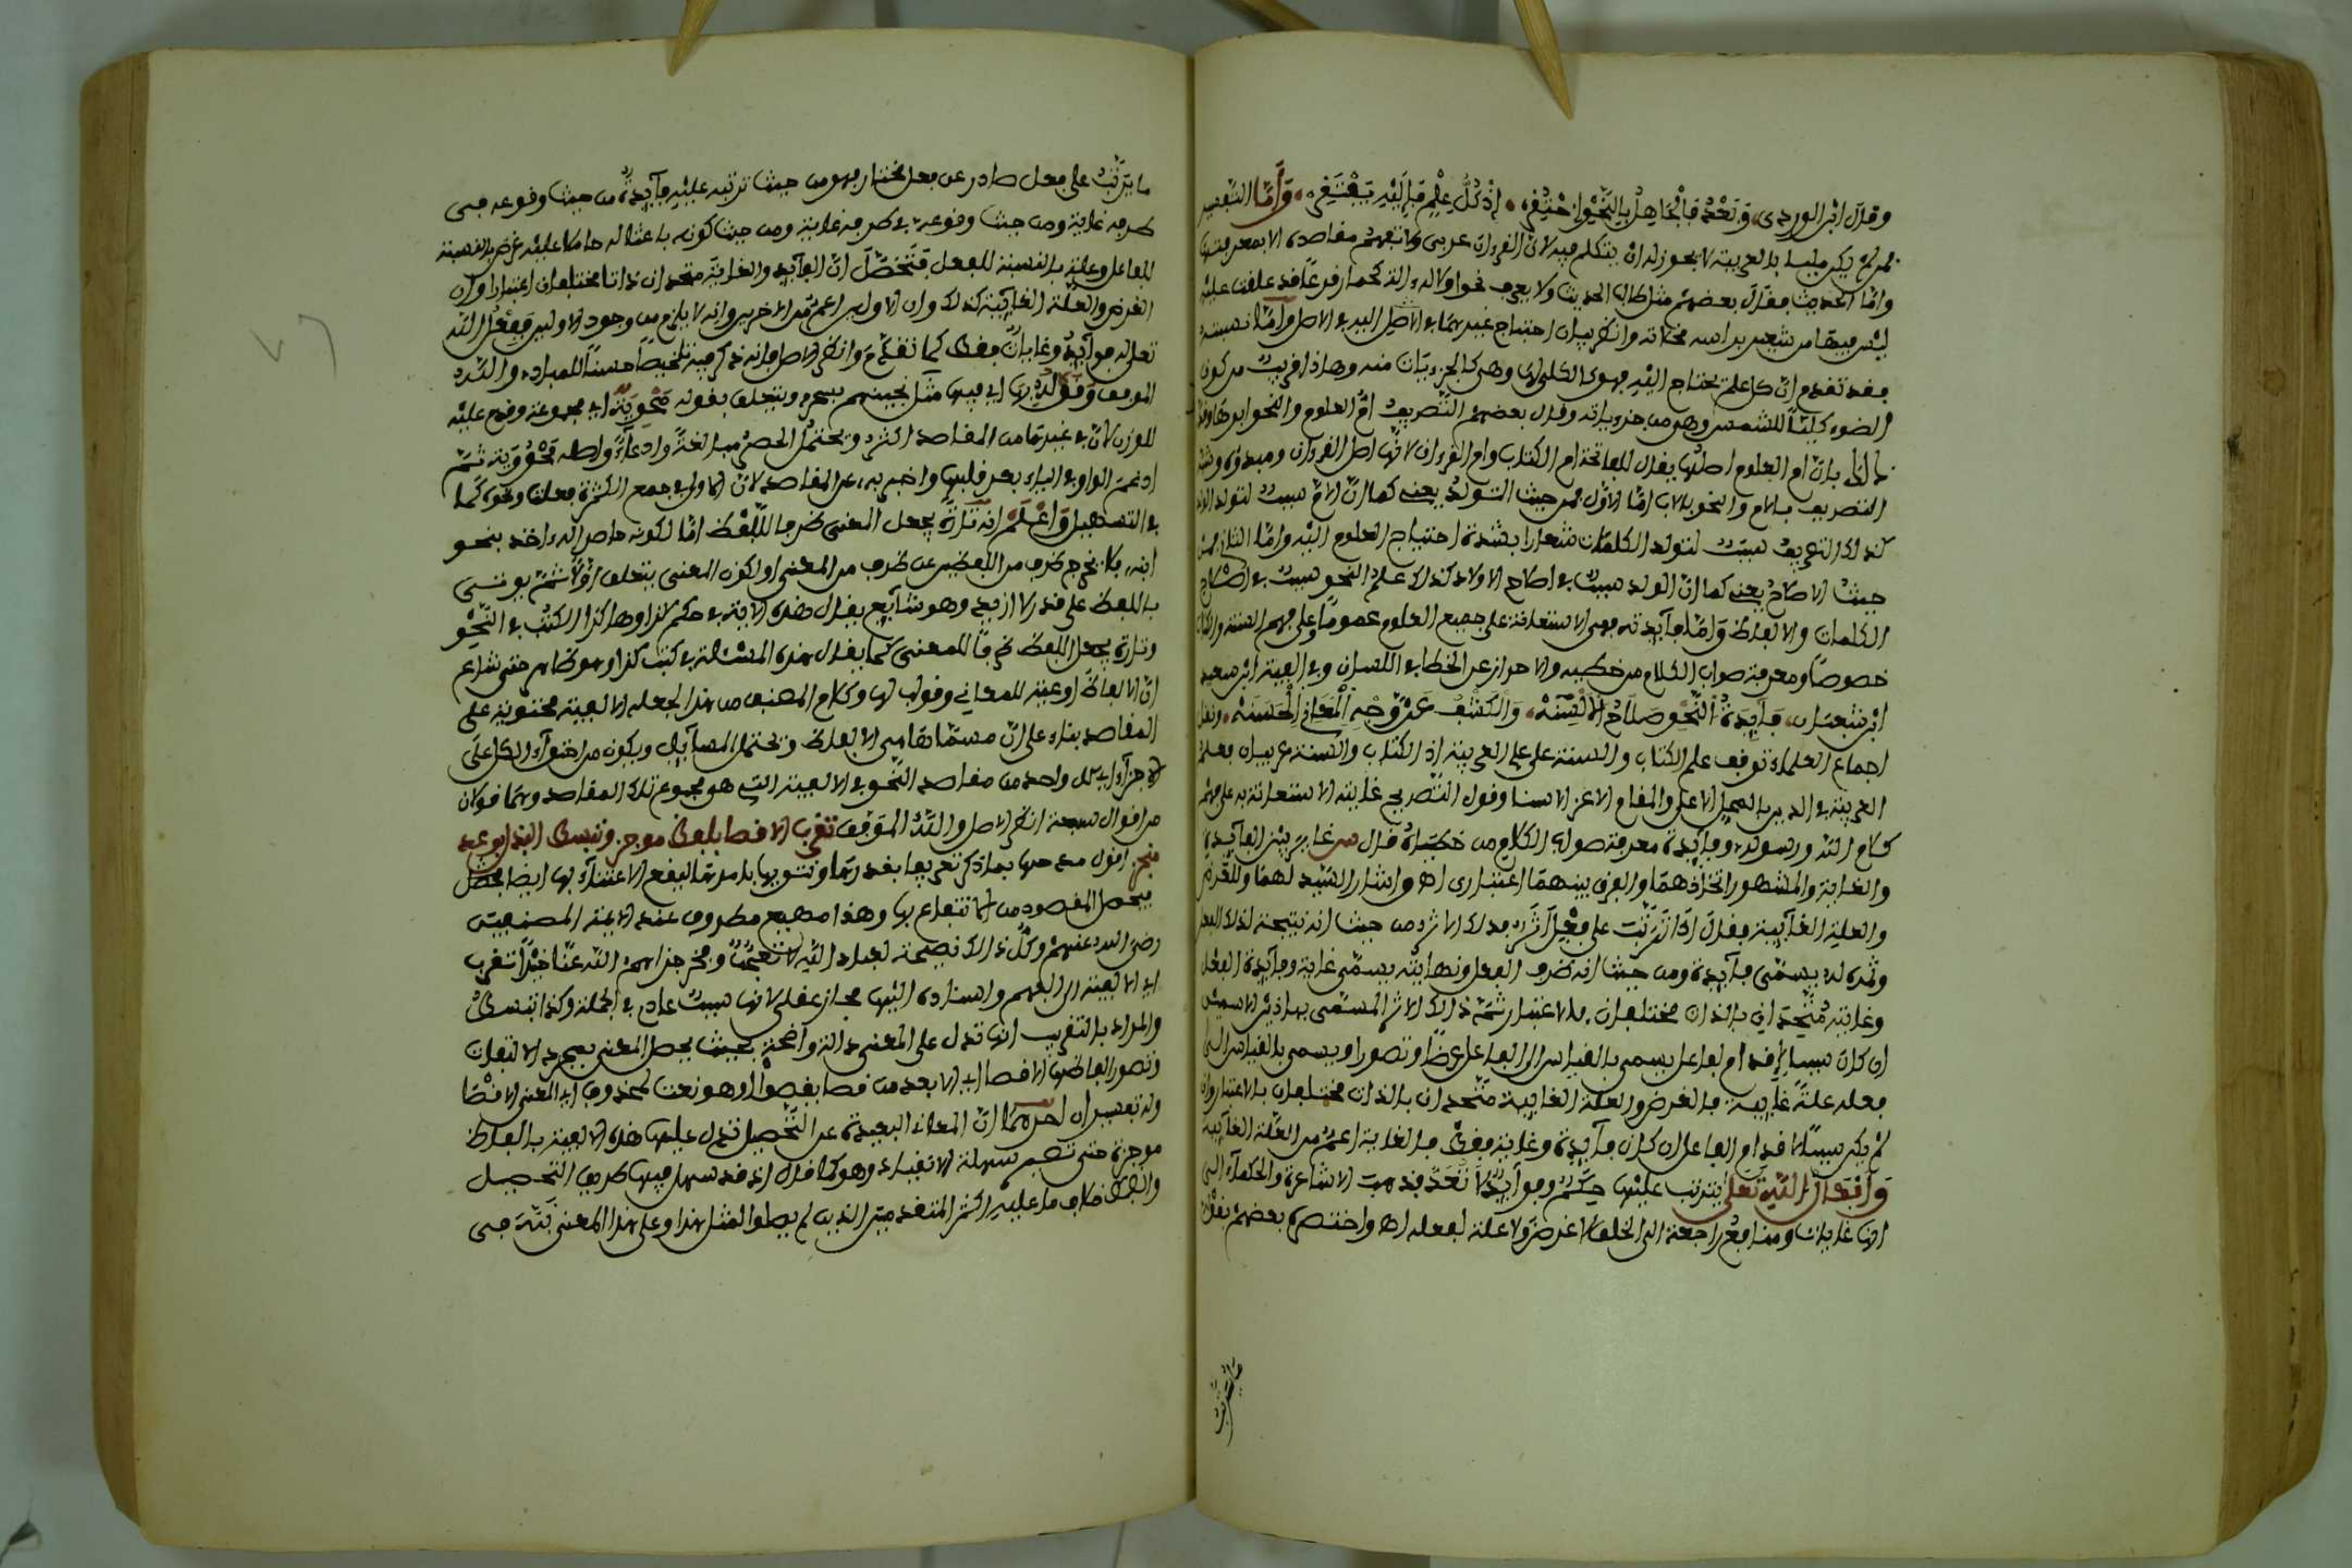 وقال ابن الوردي وبعد فالجاهل بالنحو احتقر اذ كل علم فاليه يفتقر وأما التفسير
فمن لم يكن مليا بالعربية لا يجوز له ان يتكلم فيه لان القرءان عربي ولا تفهم مقاصده الا بمعرفتها
واما الحديث فقال بعضهم مثل طالب الحديث ولا يعرف نحوا ولا له والة كحمار قد علقت عليه
ليس فيها من شعير براسه مخلاته وانظر بيان احتياج غيرهما في الاصل وأما نسبته
فقد تقدم ان كل علم يحتاج اليه فهو كالكلي لها وهي كالجزءيات منه وهاذا قريب من كون
الضوء كليا للشمس وهي من جزءياته وقال بعضهم التصريف ام العلوم والنحو ابوها
بان ام العلوم اصلها يقال للفاتحة ام الكتاب وام القرءان لانها اصل القرءان ومبدؤه
التصريف بالام والنحو بالاب اما الاول فمن حيث التولد يعني كما ان الام سبب لتولد
كذلك التصريف سبب لتولد الكلمات شعارا بشدة احتياج العلوم اليه واما الثاني فمن
حيث الاصلاح يعني كما ان الوالد سبب في اصلاح الاولاد كذلك علم النحو سبب في اصلاح
الكلمات والالفاظ وأما فايدته فهي الاستعانة على جميع العلوم عموما وعلى فهم السنة
خصوصا ومعرفة صواب الكلام من خطئه والاحتراز عن الخطا في اللسان وفي الفية ابي سعيد
ابن شعبان فايدة النحو صلاح الالسنه والكشف عن وجه المعاني الحسنه ونقل
اجماع العلماء توقف علم الكتاب والسنة على علم العربية اذ الكتاب والسنة عربيان فعلم
العربية في الدين بالمحل الاعلى والمقام الاعز الاسنا وقول التصريح غايته الاستعانة به على فهم
كلام الله ورسوله وفايدة معرفة صواب الكلام من خطئه قال س غاير بين الفايدة
والغاية والمشهور اتحادهما والفرق بينهما اعتباري اهـ واشار السيد لهما وللغرض
والعلة الغايية فقال اذا ترتب على فعل اثر فذلك الاثر من حيث انه نتيجة لذلك الفعل
وثمرة له يسمى فايدة ومن حيث انه طرف الفعل ونهايته يسمى غاية وفايدة الفعل
وغايته متحدان بالذات مختلفان بالاعتبار ثم ذلك الاثر المسمى بهاذين الاسمين
ان كان سببا لاقدام الفاعل يسمى بالقياس الى الفاعل غرضا وتصورا ويسمى بالقياس الى
فعله علة غايية فالغرض والعلة الغايية متحدان بالذات مختلفان بالاعتبار وان
لم يكن سببا لاقدام الفاعل كان فايدة وغاية فقط فالغاية اعم من العلة الغايية
وأفعال الله تعلى يترتب عليها حكم وفوايد لا تعد فذهبت الاشاعرة والحكماء الى
انها غايات ومنافع راجعة الى الخلق لا غرض ولا علة لفعله اهـ واختصره بعضهم بقوله
ما يترتب
ما يترتب على فعل صادر عن فعل مختار فهو من حيث ترتبه عليه فايدة من حيث وقوعه في
طرفه غاية ومن حيث وقوعه في طرفه غاية ومن حيث كونه باعثا له حاملا عليه غرض بالنسبة
للفاعل وعلة بالنسبة للفعل فتحصل ان الفايدة والغاية متحدان ذاتا مختلفان اعتبارا وان
الغرض والعلة الغايية كذلك وان الاولين اعم من الاخرين وانه لا يلزم من وجود الاولين وفعل الله
تعلى له فوايد وغايات فقط كما تقدم وانظر الاصل فانه ذكر فيه تلخيصا حسنا للمراد والله
الموفق وقولـه بها اي فيها مثل نجيناهم بسحر ويتعلق بقوله محوية اي مجموعة وقدم عليه
للوزن لان في غيرها من المقاصد اكثر ويحتمل الحصر مبالغة وادعاء واصله محووية ثم
ادغمت الواو في الياء بعد قلبها واخبر به عن المقاصد لان الاولى في جمع الكثرة فعلت ونحوه كما
في التسهيل واعلم انه تارة يجعل المعنى ظرفا للفظ اما لكونه حاصرا له واخذ بنحو
ابنه فلا يخرج طرف من اللفظ عن طرف من المعنى او لكون المعنى يتعلق اولا ثم يوتى
باللفظ على قدره لا ازيد وهو شايع يقال هذه الاية في حكم كذا وهاذا الكتب في النحو
وتارة يجعل اللفظ ظرفا للمعنى كما يقال هذه المسئلة في كتب كذا وهو ظاهر حتى شاع
ان الالفاظ اوعية للمعاني وقوالب لها وكلام المصنف من هذا لجعله الالفية محتوية على
المقاصد بناء على ان مسماها هي الالفاظ وتحتمل المسايل ويكون من احتواء الكل على
الاجزاء اي كل واحد من مقاصد النحو في الالفية التي هو مجموع تلك المقاصد وهما قولان
من اقوال سبعة انظر الاصل والله الموفق تقرب الاقصا بلفظ موجز وتبسط البذل بوعد
منجز اقول مدحها بما ذكر تعريفا بقدرها وتنويها بامرها ليقع الاعتناء بها ايضا
فيحصل المقصود من الانتفاع بها وهذا مهيع مطروق عند الايمة المصنفين
رضي الله عنهم وكل ذالك نصيحة لعباد الله لا تعجبا وفخر جزاهم الله عنا خيرا تقرب
اي الالفية الى الفهم واسناده اليها مجاز عقلي لانها سبب عادي في الجملة وكذا تبسط
والمراد بالتقريب انها تدل على المعنى دلالة واضحة بحيث يحصل المعنى بمجرد الالتفات
وتصور الفاظها الاقصا اي الابعد من قصا يقصوا وهو نعت لمحذوف اي المعنى الاقصا
وله تفسيران احدهما ان المعاني البعيدة عن التحصيل تدل عليها هذه الالفية بالفاظ
موجزة حتى تصير سهلة الانقياد وهو كما قال انه قد سهل فيها طريق التحصيل
والضبط خلاف ما عليه اكثر المتقدمين الذين لم يصلوا لمثل هذا وعلى هذا المعنى نبه في